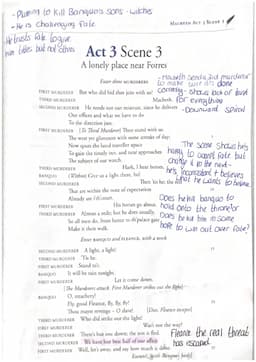 - Planning to kill Banquo's sons - witches
- He is challenging fate
He trusts fate to give
him titles but not others
MACBETH ACT 3 SCENE 3
Act 3 Scene 3
A lonely place near Forres
Enter three MURDERERS
FIRST MURDERER But who did bid thee join with us?
THIRD MURDERER Macbeth.
SECOND MURDERER He needs not our mistrust, since he delivers
Our offices and what we have to do
To the direction just.
FIRST MURDERER [To Third Murderer] Then stand with us.
The west yet glimmers with some streaks of day;
Now spurs the lated traveller apace
To gain the timely inn, and near approaches
The subject of our watch.
THIRD MURDERER Hark, I hear horses.
BANQUO (Within) Give us a light, there, ho!
SECOND MURDERER Then 'tis he; the rest
That are within the note of expectation
Already are i'th'court.
FIRST MURDERER His horses go about.
THIRD MURDERER Almost a mile; but he does usually,
So all men do, from hence to th'palace gate
Make it their walk.
Enter BANQUO and FLEANCE, with a torch
SECOND MURDERER A light, a light!
THIRD MURDERER 'Tis he.
FIRST MURDERER Stand to't.
BANQUO It will be rain tonight.
FIRST MURDERER Let it come down.
The Murderers attack. First Murderer strikes out the light
BANQUO O, treachery!
Fly, good Fleance, fly, fly, fly!
Thou mayst revenge - O slave! [Dies. Fleance escapes]
THIRD MURDERER Who did strike out the light?
FIRST MURDERER Was't not the way?
THIRD MURDERER There's but one down; the son is fled.
SECOND MURDERER We have lost best half of our affair.
FIRST MURDERER Well, let's away, and say how much is done.
Exeunt, [with Banquo's body]
- Macbeth sends 3rd murderer
to make sure it's done
- shows lack of trust
for everything
- Downward spiral
The scene shows he's
happy to accept fate but
change it in the next -
he's inconsistent & believes
what he wants to believe
Does he kill banquo to
hold onto the throne or
does he kill him in some
hope to win out over fate?
Fleance the real threat
has escaped